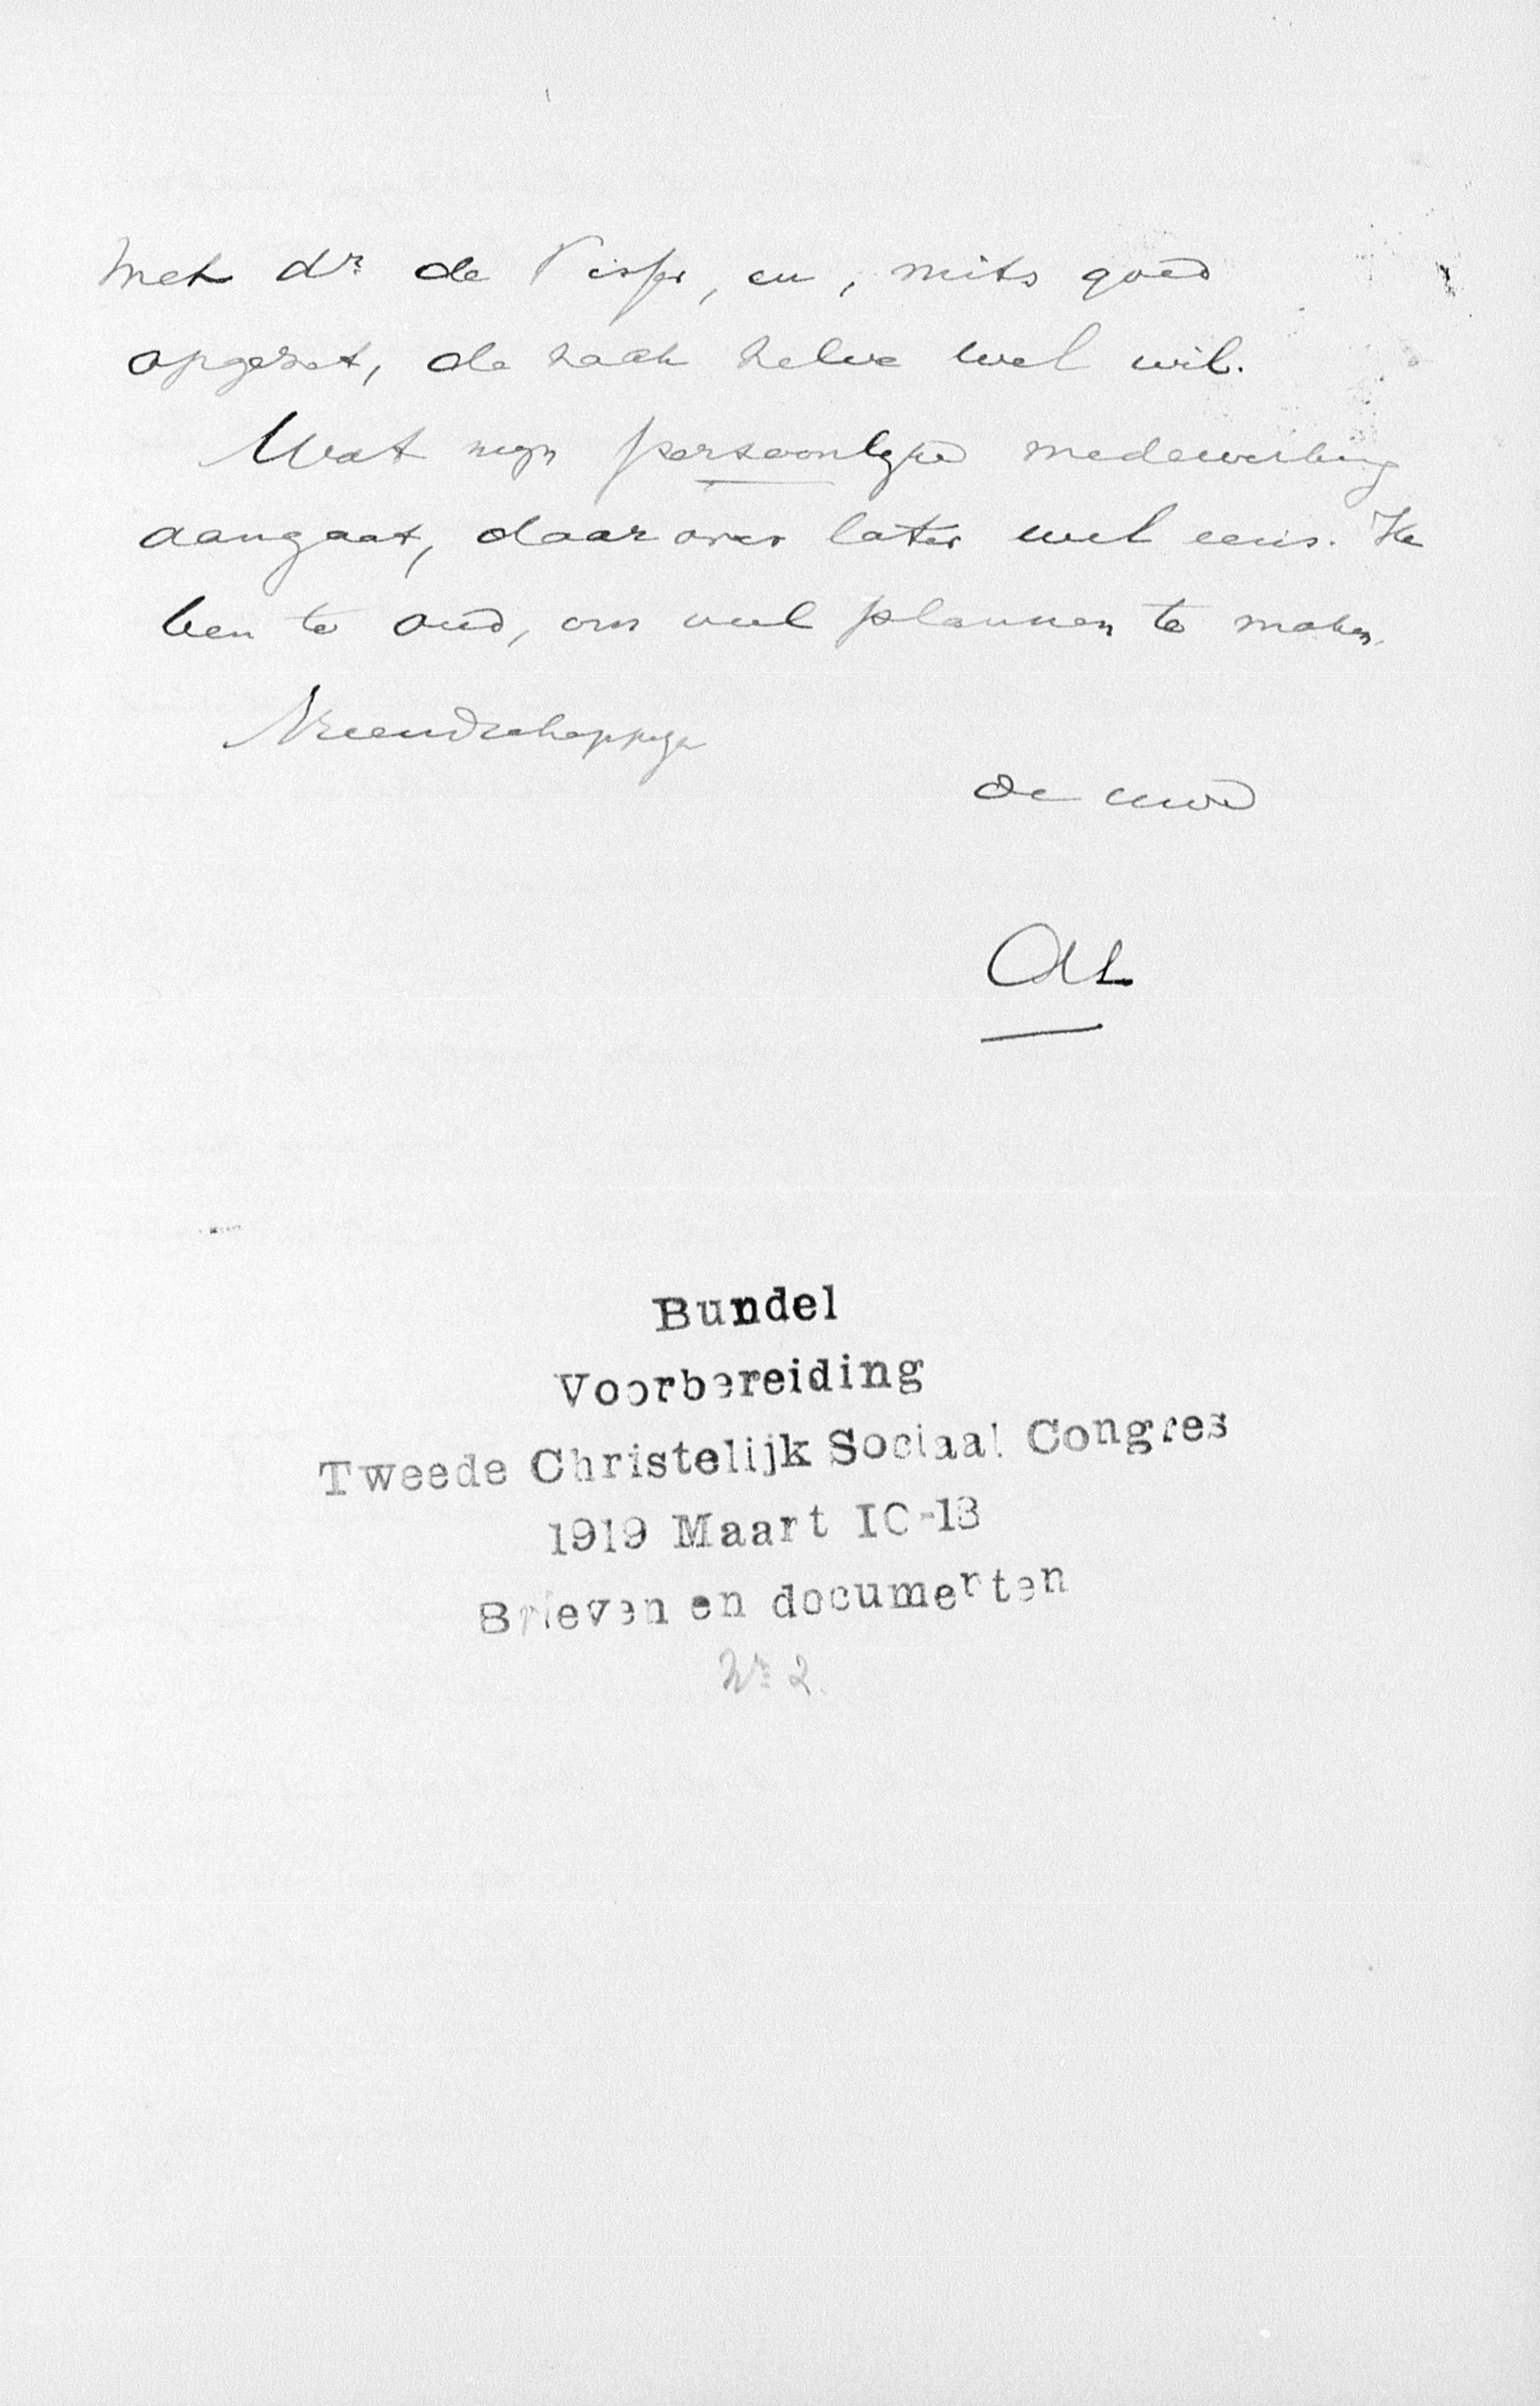 met dr de Visser, en, mits goed
opgezet, de zaak zelve wel wil.
Wat mijn persoonlijke medewerking
aangaat, daarover later wel eens. Ik
ben te oud, om veel plannen te maken.
Vriendschappelijk
de uwe
Bundel
Voorbereiding
Tweede Christelijk Sociaal Congres
1919 Maart 10-13
Brieven en documenten
No 2.